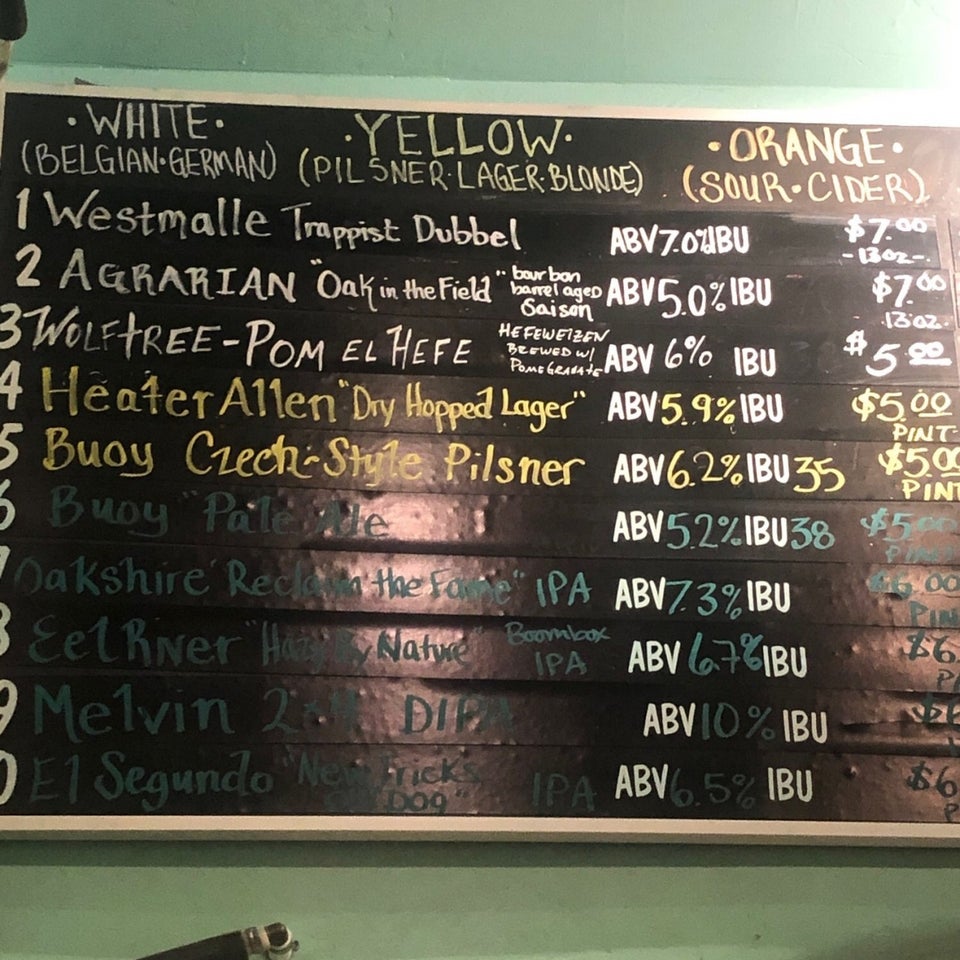 ·WHITE· ·YELLOW· ·ORANGE·
(BELGIAN·GERMAN) (PILSNER·LAGER·BLONDE) (SOUR·CIDER)
1 Westmalle Trappist Dubbel ABV 7.0% IBU $7.00
-13oz-
2 AGRARIAN "Oak in the Field" bourbon barrel aged Saison ABV 5.0% IBU $7.00
13oz.
3 WOLFTREE-POM EL HEFE HEFEWEIZEN BREWED W/ POMEGRANATE ABV 6% IBU $5.00
4 Heater Allen "Dry Hopped Lager" ABV 5.9% IBU $5.00
PINT
5 Buoy Czech-Style Pilsner ABV 6.2% IBU 35 $5.00
PINT
6 Buoy "Pale Ale ABV 5.2% IBU 38 $5.00
PINT
Oakshire "Reclaim the Fame" IPA ABV 7.3% IBU $6.00
PIN
8 Eel River "Hazy By Nature" Boombox IPA ABV 6.7% IBU $6.
9 Melvin 2x4 DIPA ABV 10% IBU $6
0 El Segundo "New Tricks Dog" IPA ABV 6.5% IBU $6